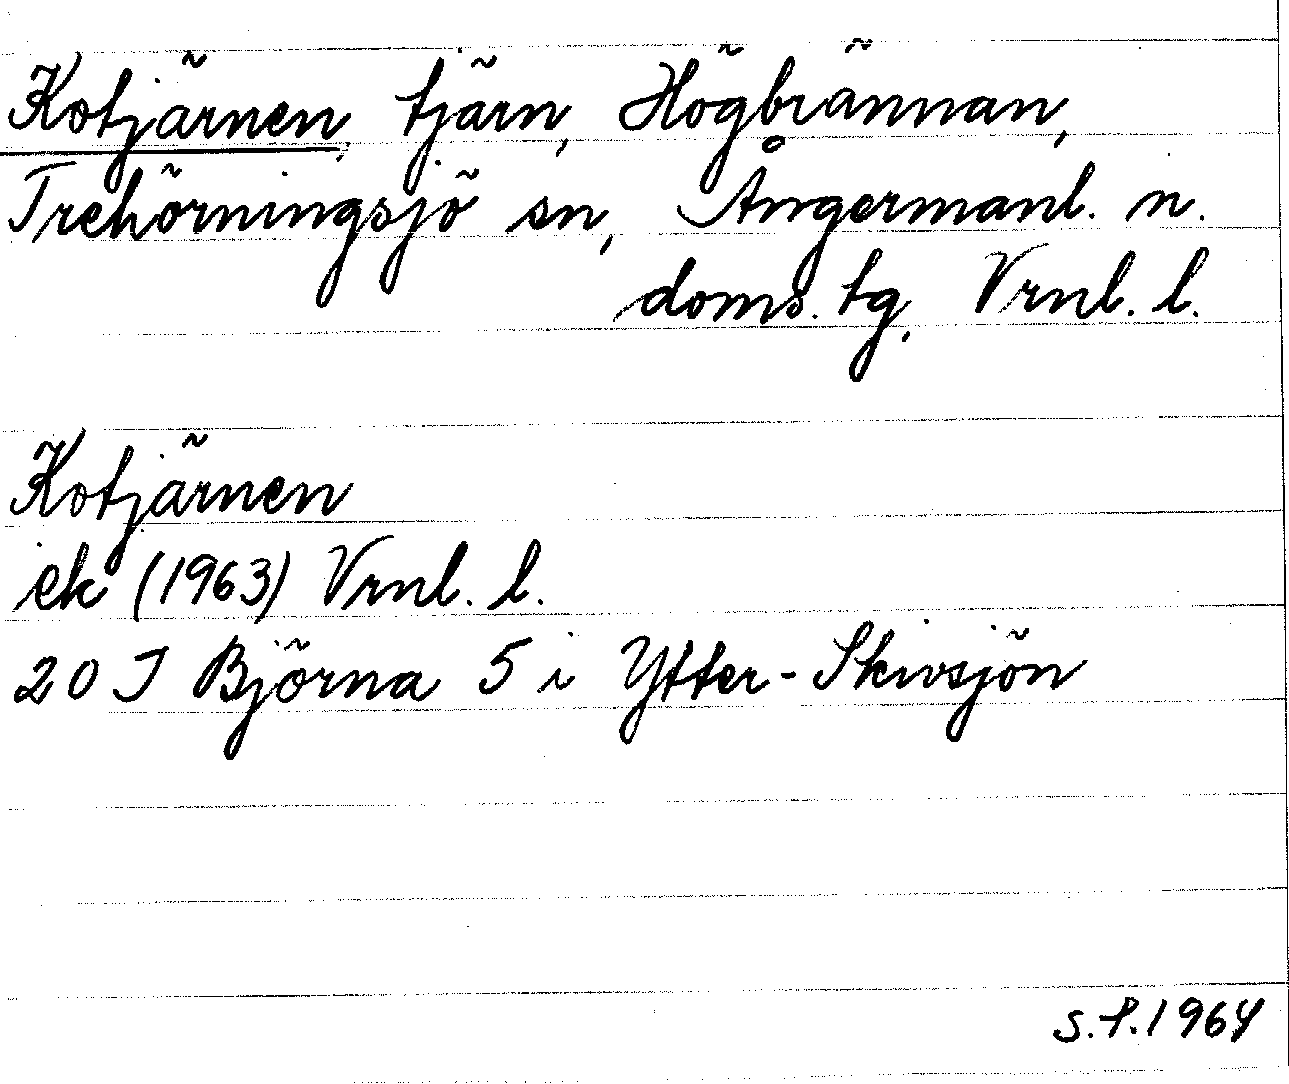 Kotjärnen, tjärn, Högbrännan,
Trehörningsjö sn, Ångermanl. n.
doms. tg, Vrnl. l.
Kotjärnen
ek (1963) Vrnl. l.
20 J Björna 5 i Ytter-Skivsjön
S.P.1964